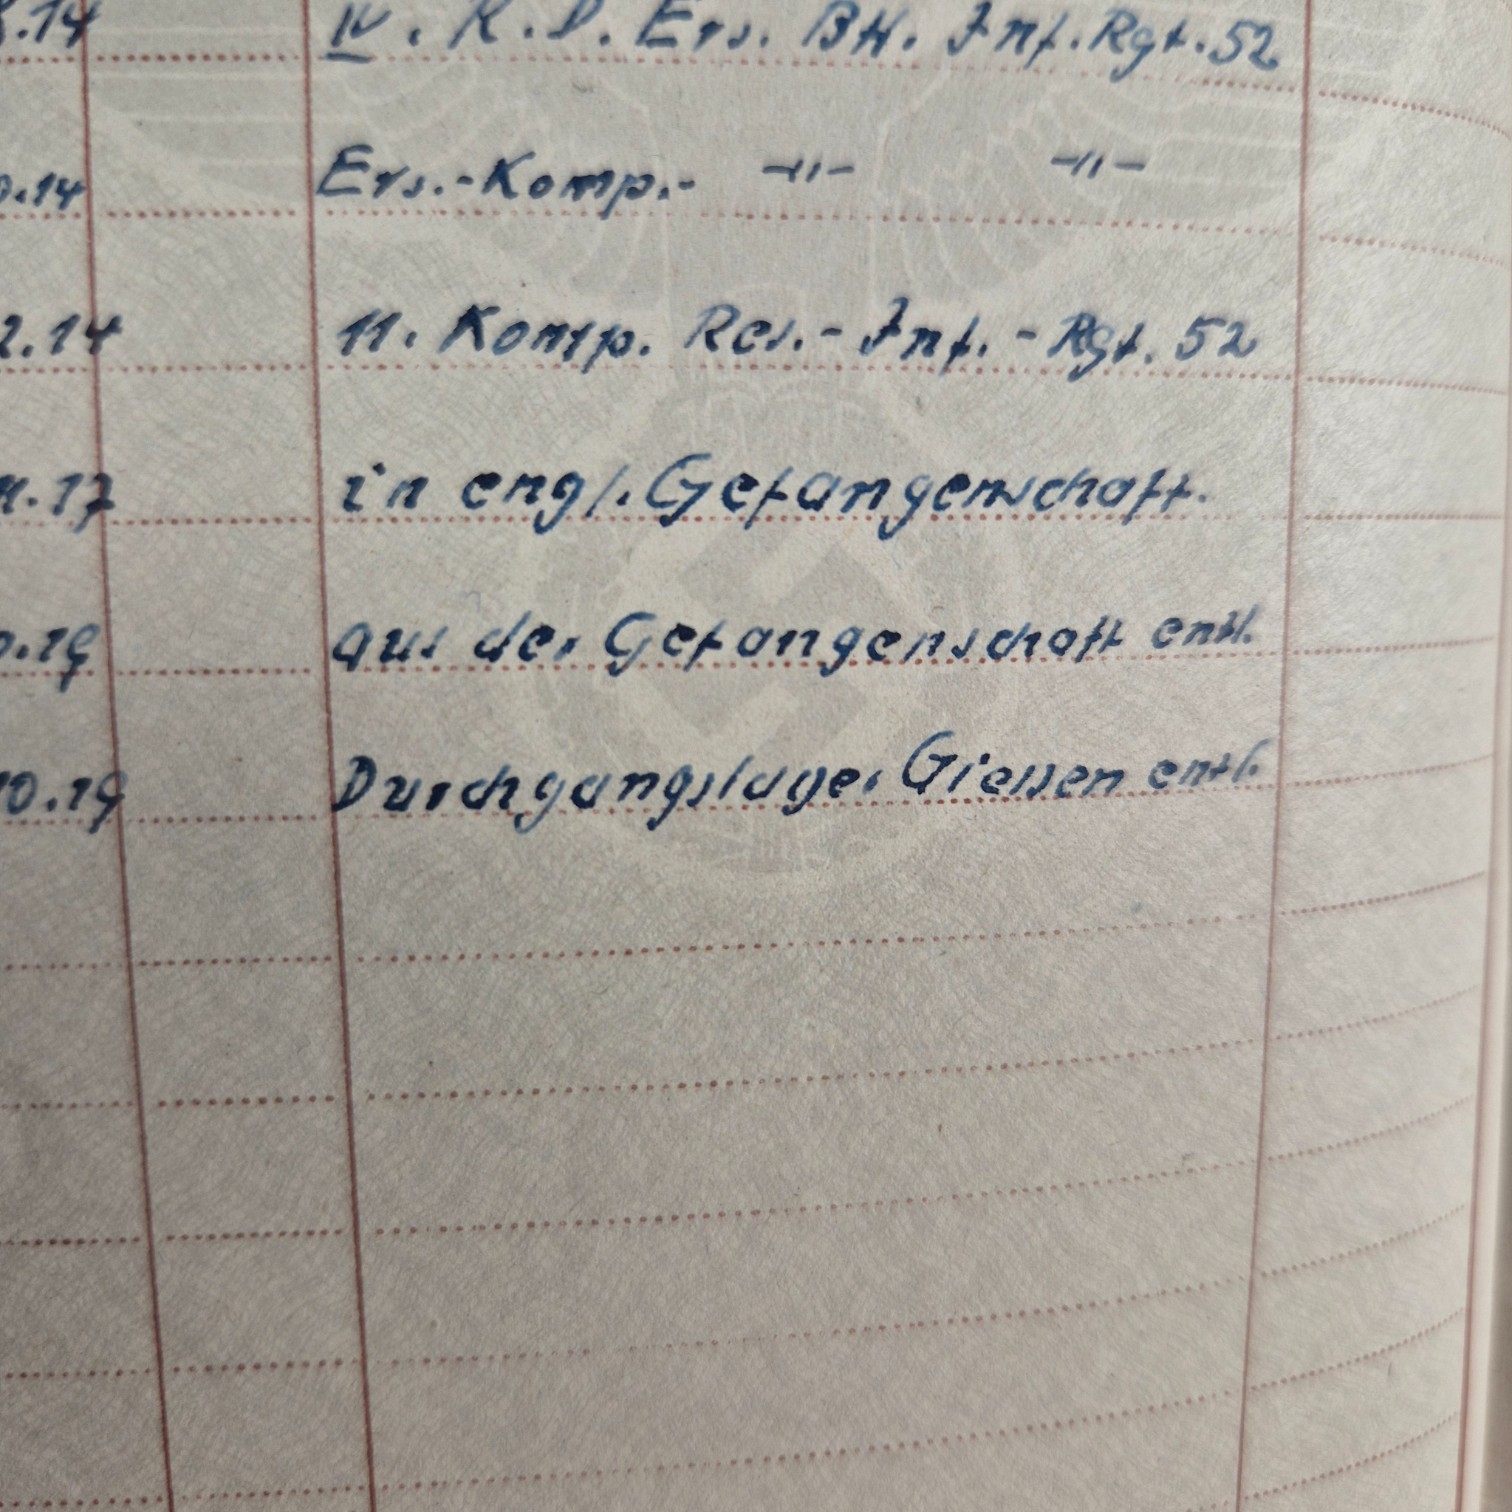 8.14 IV. R.D. Ers. Btl. Inf. Rgt. 52
0.14 Ers.-Komp.- -"- -"-
2.14 11. Komp. Res.-Inf.-Rgt. 52
4.17 in engl. Gefangenschaft.
0.19 aus der Gefangenschaft entl.
10.19 Durchgangslager Giessen entl.